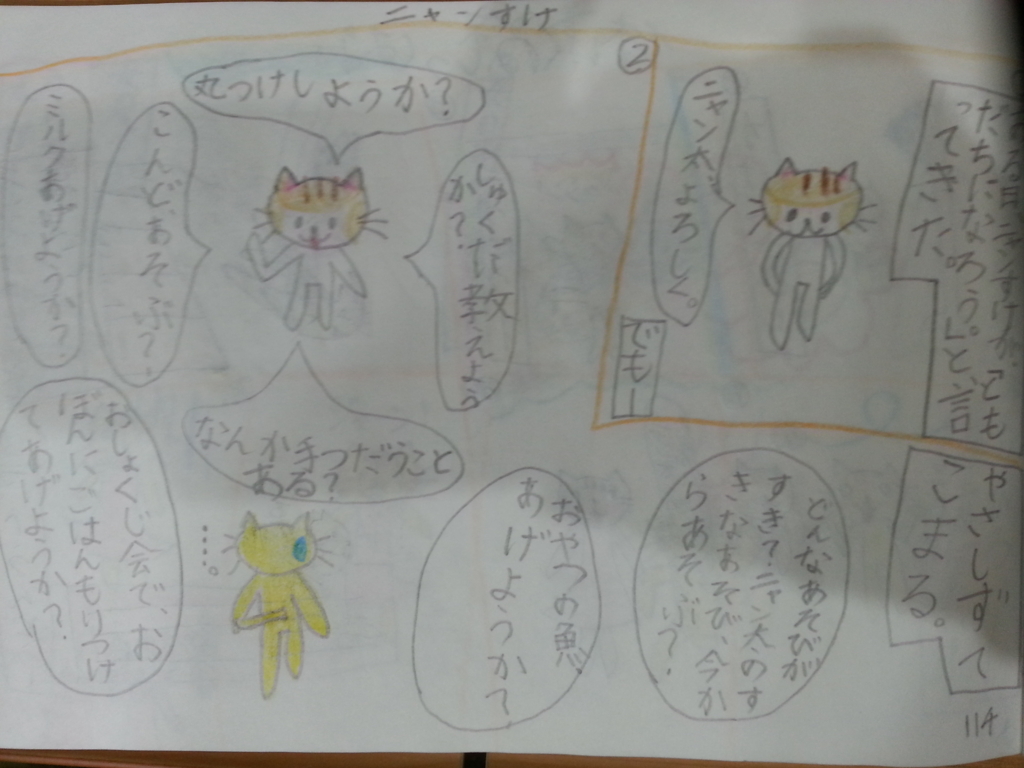 ニャンすけ
②
ある日ニャンすけが、「とも
だちになろう。」と言
ってきた。
ニャン太よろしく。
でもー
やさしずぎて
こまる。
どんなあそびが
すき?ニャン太のす
きなあそび、今か
らあそぶ?
しゅくだい教
か?、
丸つけしようか?
こんど、あそぶ?
ミルクあげようか?
おやつの魚
あげようか?
なんか手つだうこと
ある?
おしょくじ会で、お
ぼんにごはんもりつけ
てあげようか?
…。
114